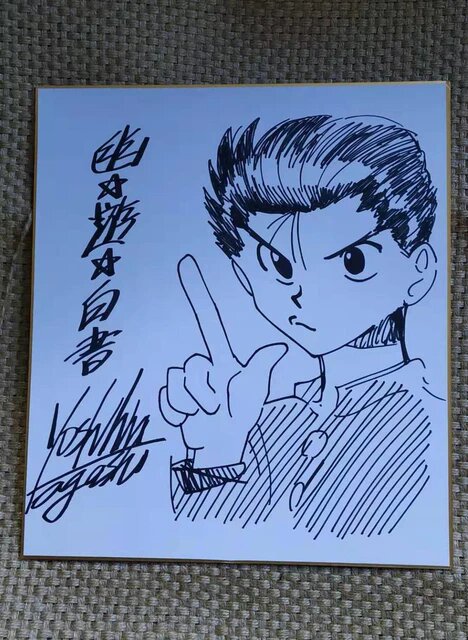 幽☆遊☆白書
Yoshihiro
Togashi